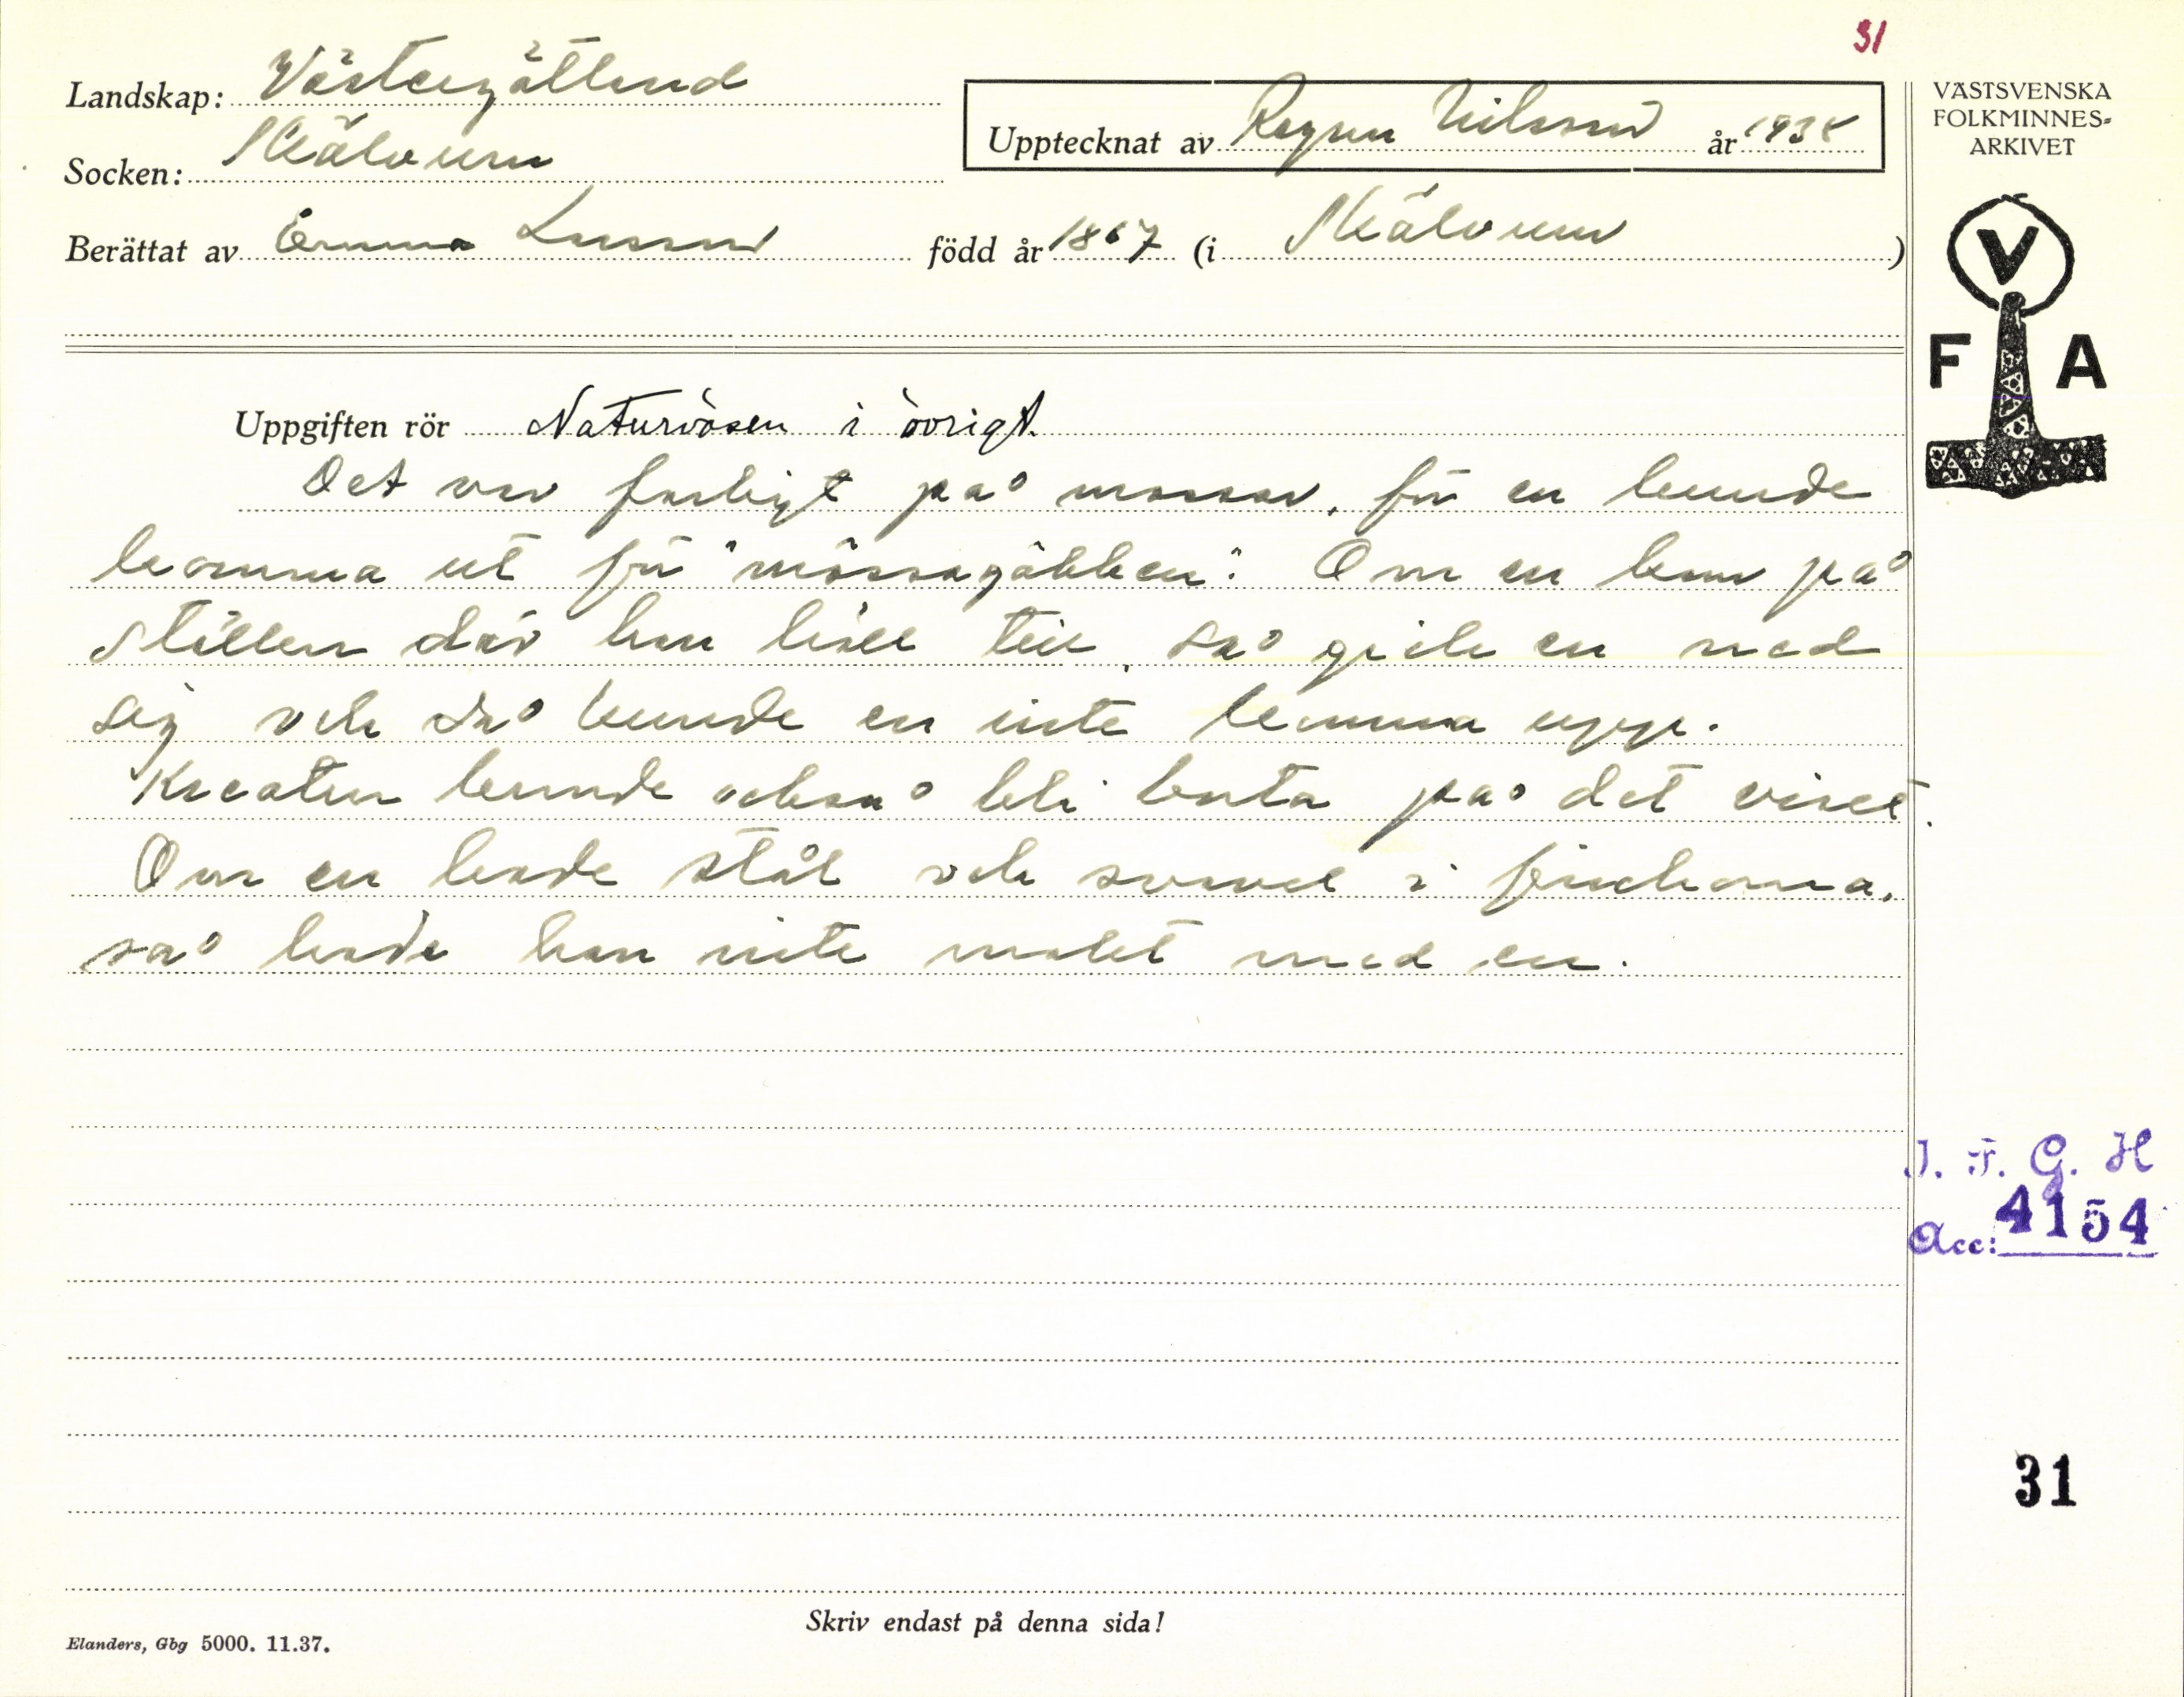 31
Landskap: Västergötland
Socken: Skälvum
Upptecknat av Ragnar Nilsson år 1938
Berättat av Emma Larsson född år 1867 (i Skälvum)
VÄSTSVENSKA
FOLKMINNES-
ARKIVET
V
F A
Uppgiften rör Naturväsen i övrigt.
Det var farligt på mossar, för en kunde
komma ut för "mossagubben". Om en kom på
ställen där han höll till, så gick en ned
sig och då kunde en inte komma upp.
Kreatur kunde också bli borta på det viset.
Om en hade stål och svavel i fickorna,
så hade han inte makt med en.
I. F. G. H
Acc: 4154
31
Skriv endast på denna sida!
Elanders, Gbg 5000. 11.37.